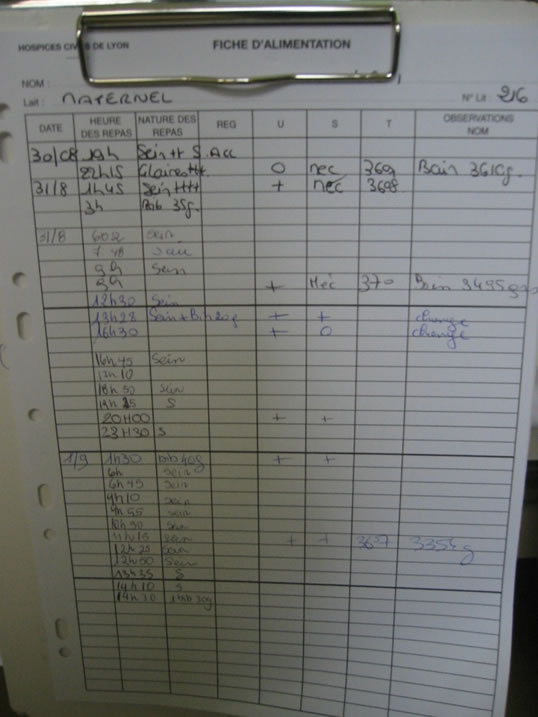 HOSPICES CIVILS DE LYON FICHE D'ALIMENTATION
NOM :
Lait : MATERNEL N° Lit : 216
DATE HEURE DES REPAS NATURE DES REPAS REG U S T OBSERVATIONS NOM
30/08 19h Sein ++ S. Acc
22h15 Glaires ++. O mec 369 Bain 3610g.
31/8 1h45 Sein +++ + mec 3698
3h Bib 35g.
31/8 6h02 sein
7 48 sein
9h sein
9h + Méc 370 Bain 3495g
12h30 Sein
13h23 Sein + Bib 20g + + change
16h30 + O change
16h45 Sein
17h10
18h50 sein
19h15 S
20H00 + +
23H30 S
1/9 1h30 bib 40g + +
6h sein
6h45 sein
9h10 sein
9h55 sein
10h50 sein
11h15 sein + + 3697 3354g
12h25 sein
12h50 Sein
13h35 S
14h10 S
14h30 1 bib 30g